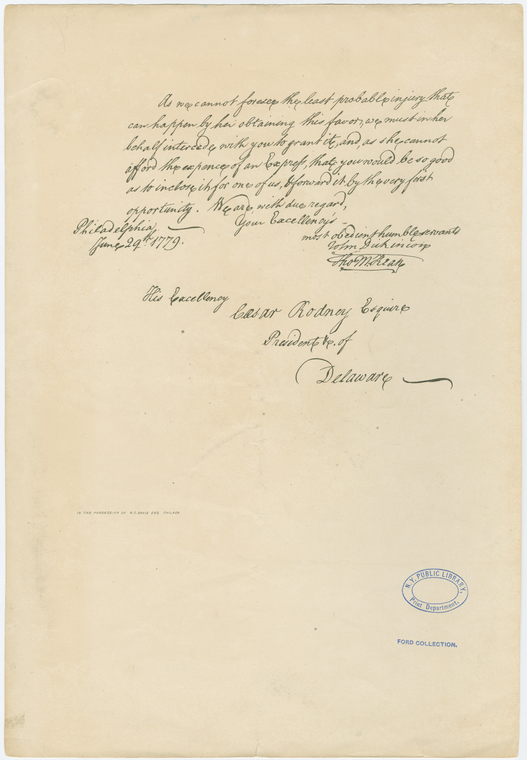 As we cannot foresee the least probable injury that
can happen by her obtaining this favor, we must in her
behalf intercede with you to grant it, and, as she cannot
afford the expence of an Express, that you would be so good
as to inclose it for one of us, & forward it by the very first
opportunity. We are with due regard,
Your Excellency's
Philadelphia
June 29th 1779.
most obedient humble servants
John Dickinson
Tho M:Kean
His Excellency
Cæsar Rodney Esquire
President &c. of
Delaware
IN THE POSSESSION OF ESQ. PHILADA.
N.Y. PUBLIC LIBRARY,
Print Department.
FORD COLLECTION.